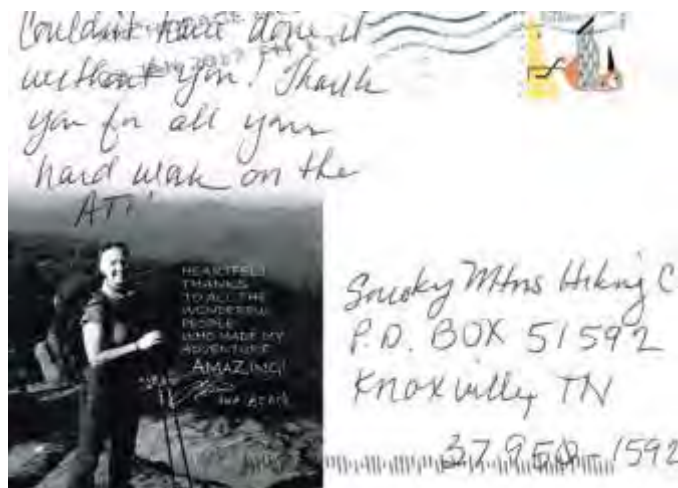 Couldn't have done it
without you! Thank
you for all your
hard work on the
AT!
HEARTFELT
THANKS
TO ALL THE
WONDERFUL
PEOPLE
WHO MADE MY
ADVENTURE
AMAZING!
Smoky Mtns Hiking C
P.O. BOX 51592
Knoxville, TN
37950-1592